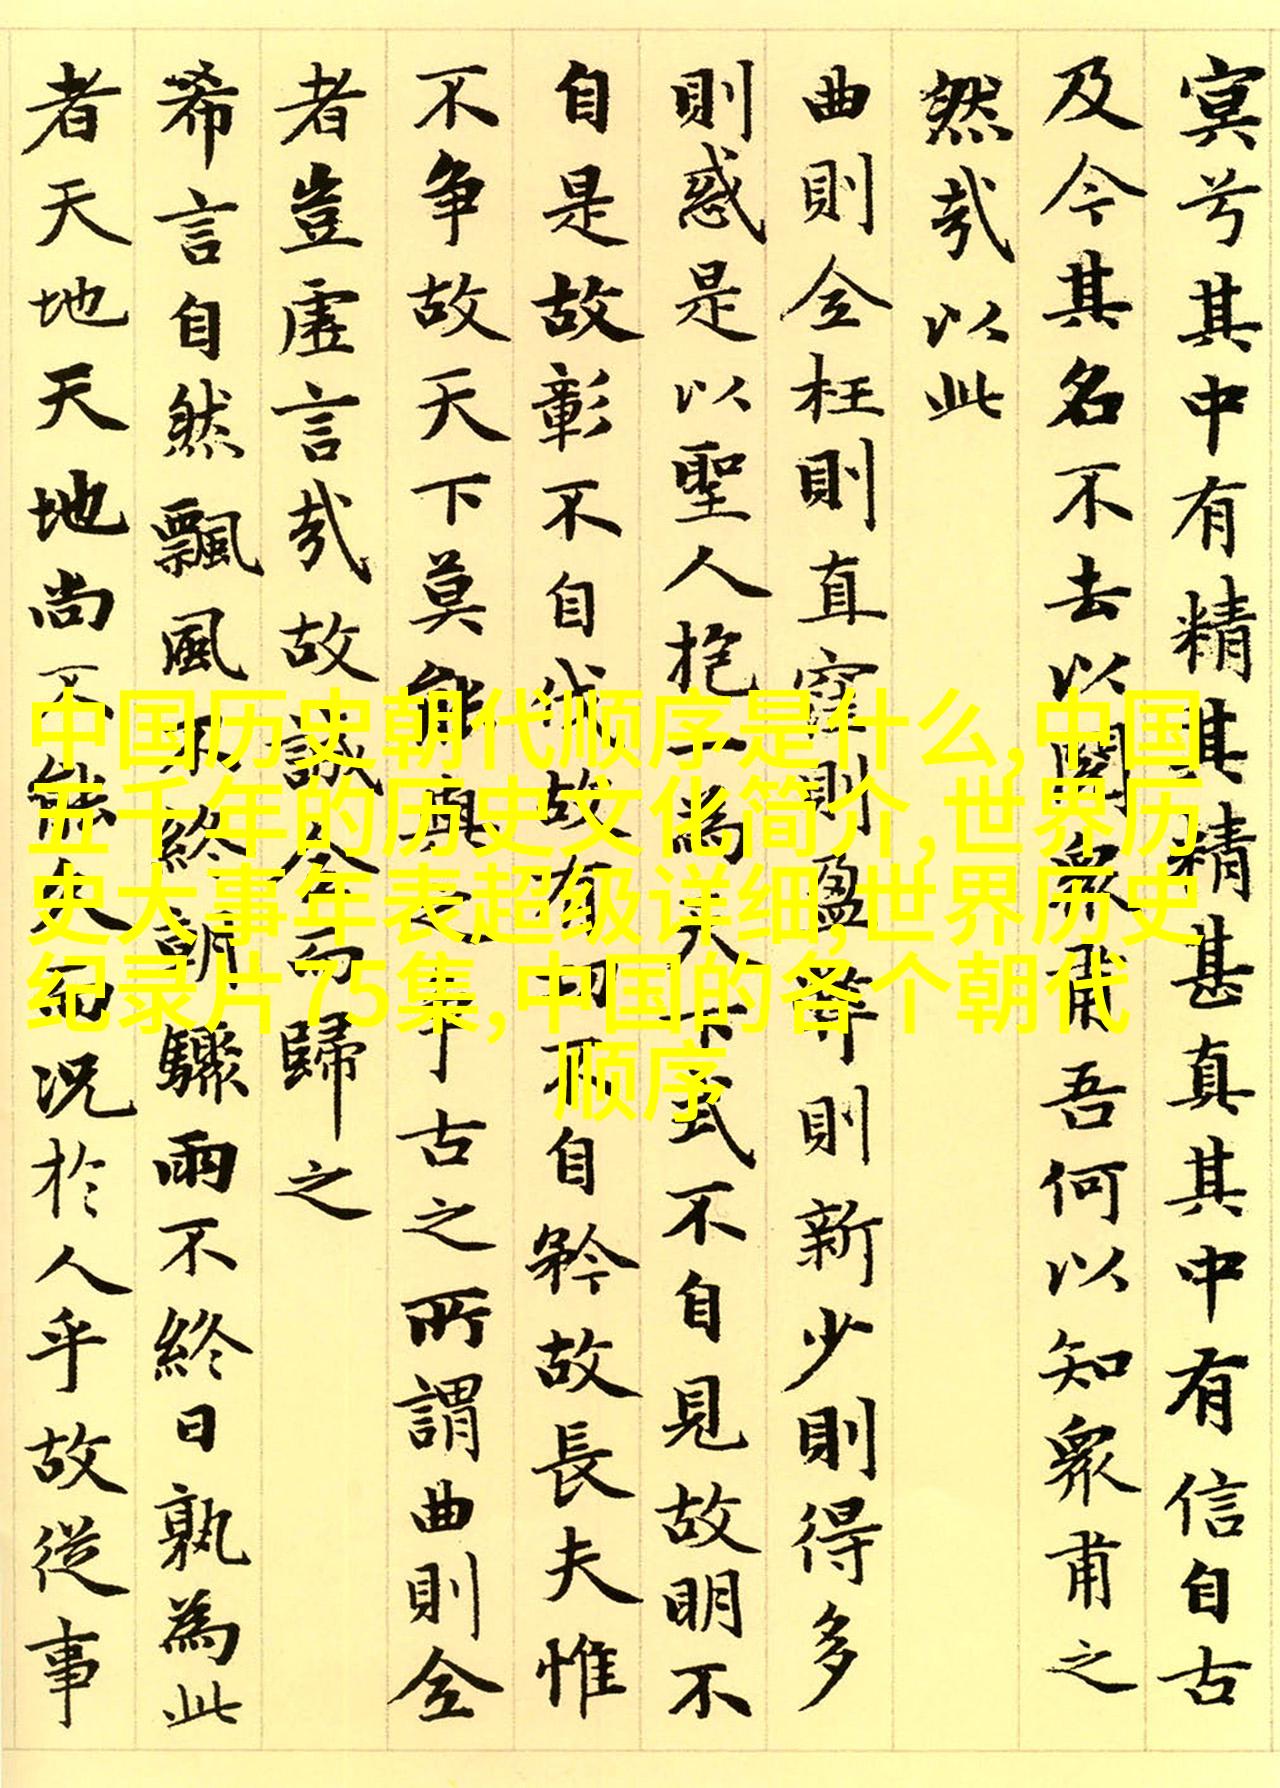 冥兮其中有精其精甚真其中有信自古
及今其名不去以閱衆甫吾何以知衆甫之
然哉以此
曲則全枉則直窪則盈弊則新少則得多
則惑是以聖人抱一為天下式不自見故明不
自是故彰不自伐故有功不自矜故長夫惟
不争故天下莫能與之争古之所謂曲則全
者豈虛言哉故誠全而歸之
希言自然飄風不終朝驟雨不終日孰為此
者天地天地尚不能久而况於人乎故從事
中国历史朝代顺序是什么,中国
五千年的历史文化简介,世界历
史大事年表超级详细,世界历史
纪录片75集,中国的各个朝代
顺序